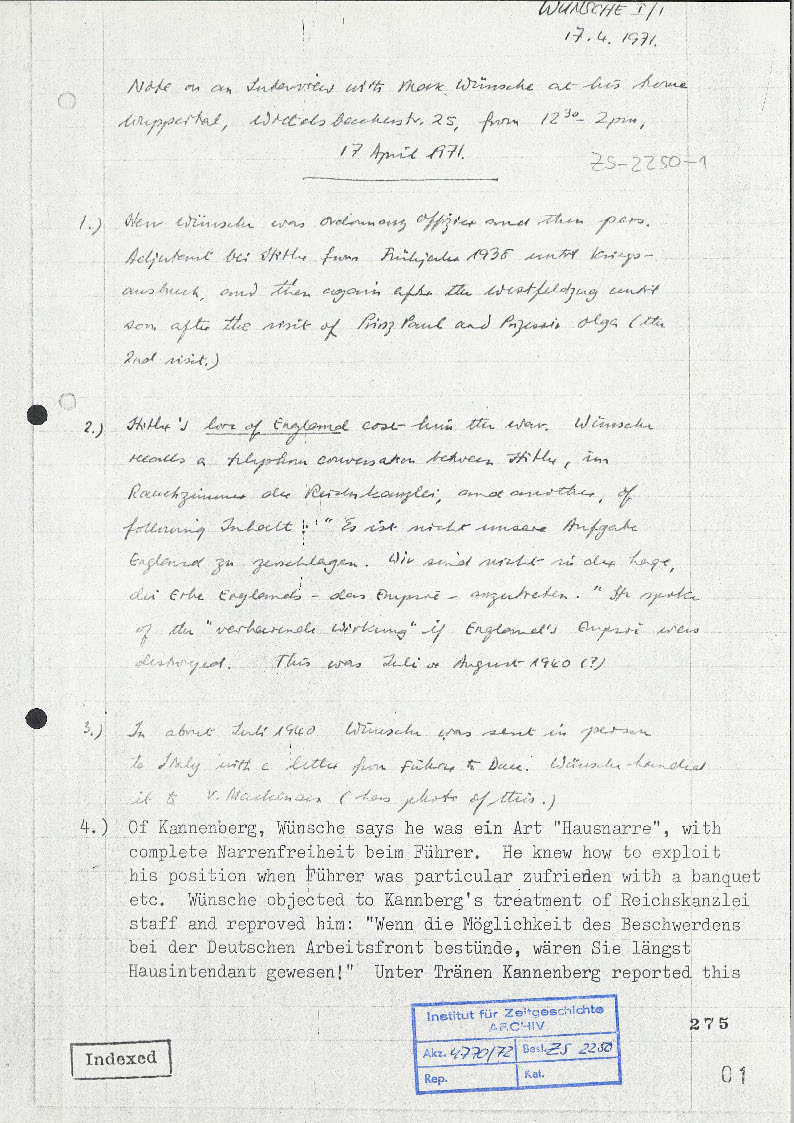 WÜNSCHE I/1
17.4.1971.
Note on an Interview with Max Wünsche at his home
Wuppertal, Wittelsbacherstr. 25, from 12³⁰– 2pm,
17 April 1971.
ZS-2250-1
1.) Herr Wünsche was Ordonnanz Offizier and then pers.
Adjutant bei Hitler from Frühjahr 1938 until Kriegs-
ausbruch, and then again after the Westfeldzug until
soon after the visit of Prinz Paul and Przessin Olga (the
2nd visit.)
2.) Hitler's love of England cost him the war. Wünsche
recalls a telephone conversation between Hitler, im
Rauchzimmer der Reichskanzlei, and another, of
following Inhalt: "Es ist nicht unsere Aufgabe
England zu zerschlagen. Wir sind nicht in der Lage,
die Erbe Englands – das Empire – anzutreten." He spoke
of the "verheerende Wirkung" if England's Empire was
destroyed. This was Juli or August 1940 (?)
3.) In about Juli 1940 Wünsche was sent in person
to Italy with a letter from Führer to Duce. Wünsche handed
it to v. Mackensen (has photo of this.)
4.) Of Kannenberg, Wünsche says he was ein Art "Hausnarre", with
complete Narrenfreiheit beim Führer. He knew how to exploit
his position when Führer was particular zufrieden with a banquet
etc. Wünsche objected to Kannberg's treatment of Reichskanzlei
staff and reproved him: "Wenn die Möglichkeit des Beschwerdens
bei der Deutschen Arbeitsfront bestünde, wären Sie längst
Hausintendant gewesen!" Unter Tränen Kannenberg reported this
Institut für Zeitgeschichte
ARCHIV
Akz. 4770/72 Best. ZS 2250
Rep. Kat.
275
Indexed
01